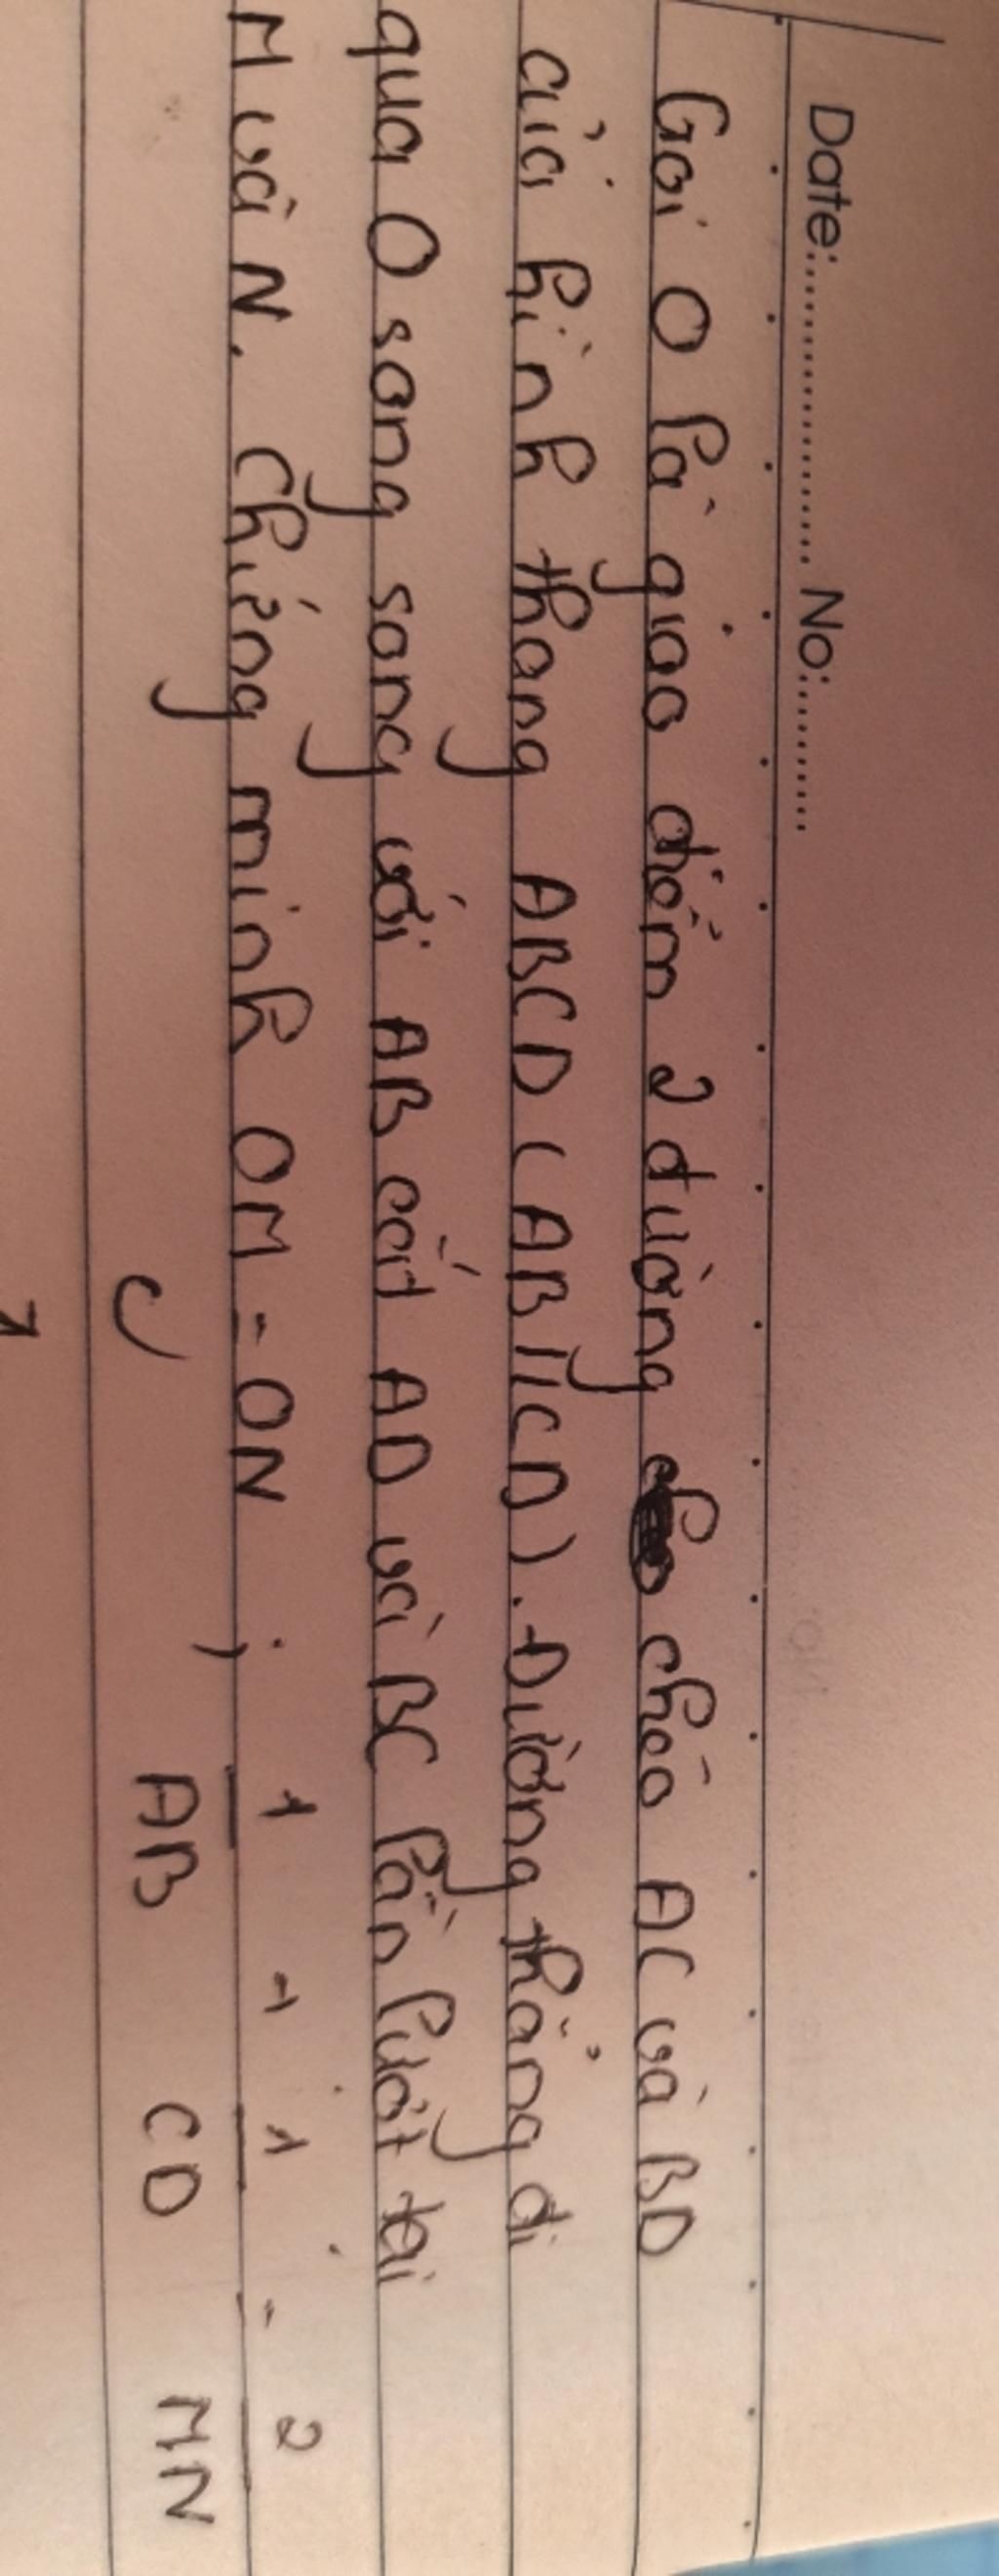 Date:.................. No:..........
Gọi O là giao điểm 2 đường chéo AC và BD
của hình thang ABCD (AB//CD). Đường thẳng đi
qua O song song với AB cắt AD và BC lần lượt tại
M và N. Chứng minh OM = ON ; 1/AB + 1/CD = 2/MN